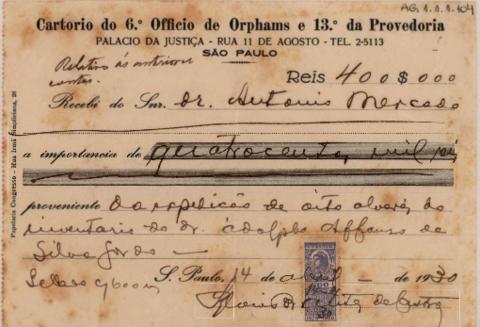 AG.1.1.1.104
Cartorio do 6.º Officio de Orphams e 13.º da Provedoria
PALACIO DA JUSTIÇA - RUA 11 DE AGOSTO - TEL. 2-5113
SÃO PAULO
Relativo ás anteriores
contas.
Reis 400$000
Recebi do Snr. dr. Antonio Mercado
a importancia de quatrocentos mil réis
proveniente da expedição de oito alvarás do
inventario do dr. Adolpho Affonso da
Silva Gordo
Sellos
S. Paulo, 14 de abril de 1930
de Castro
Papelaria Congresso - Rua